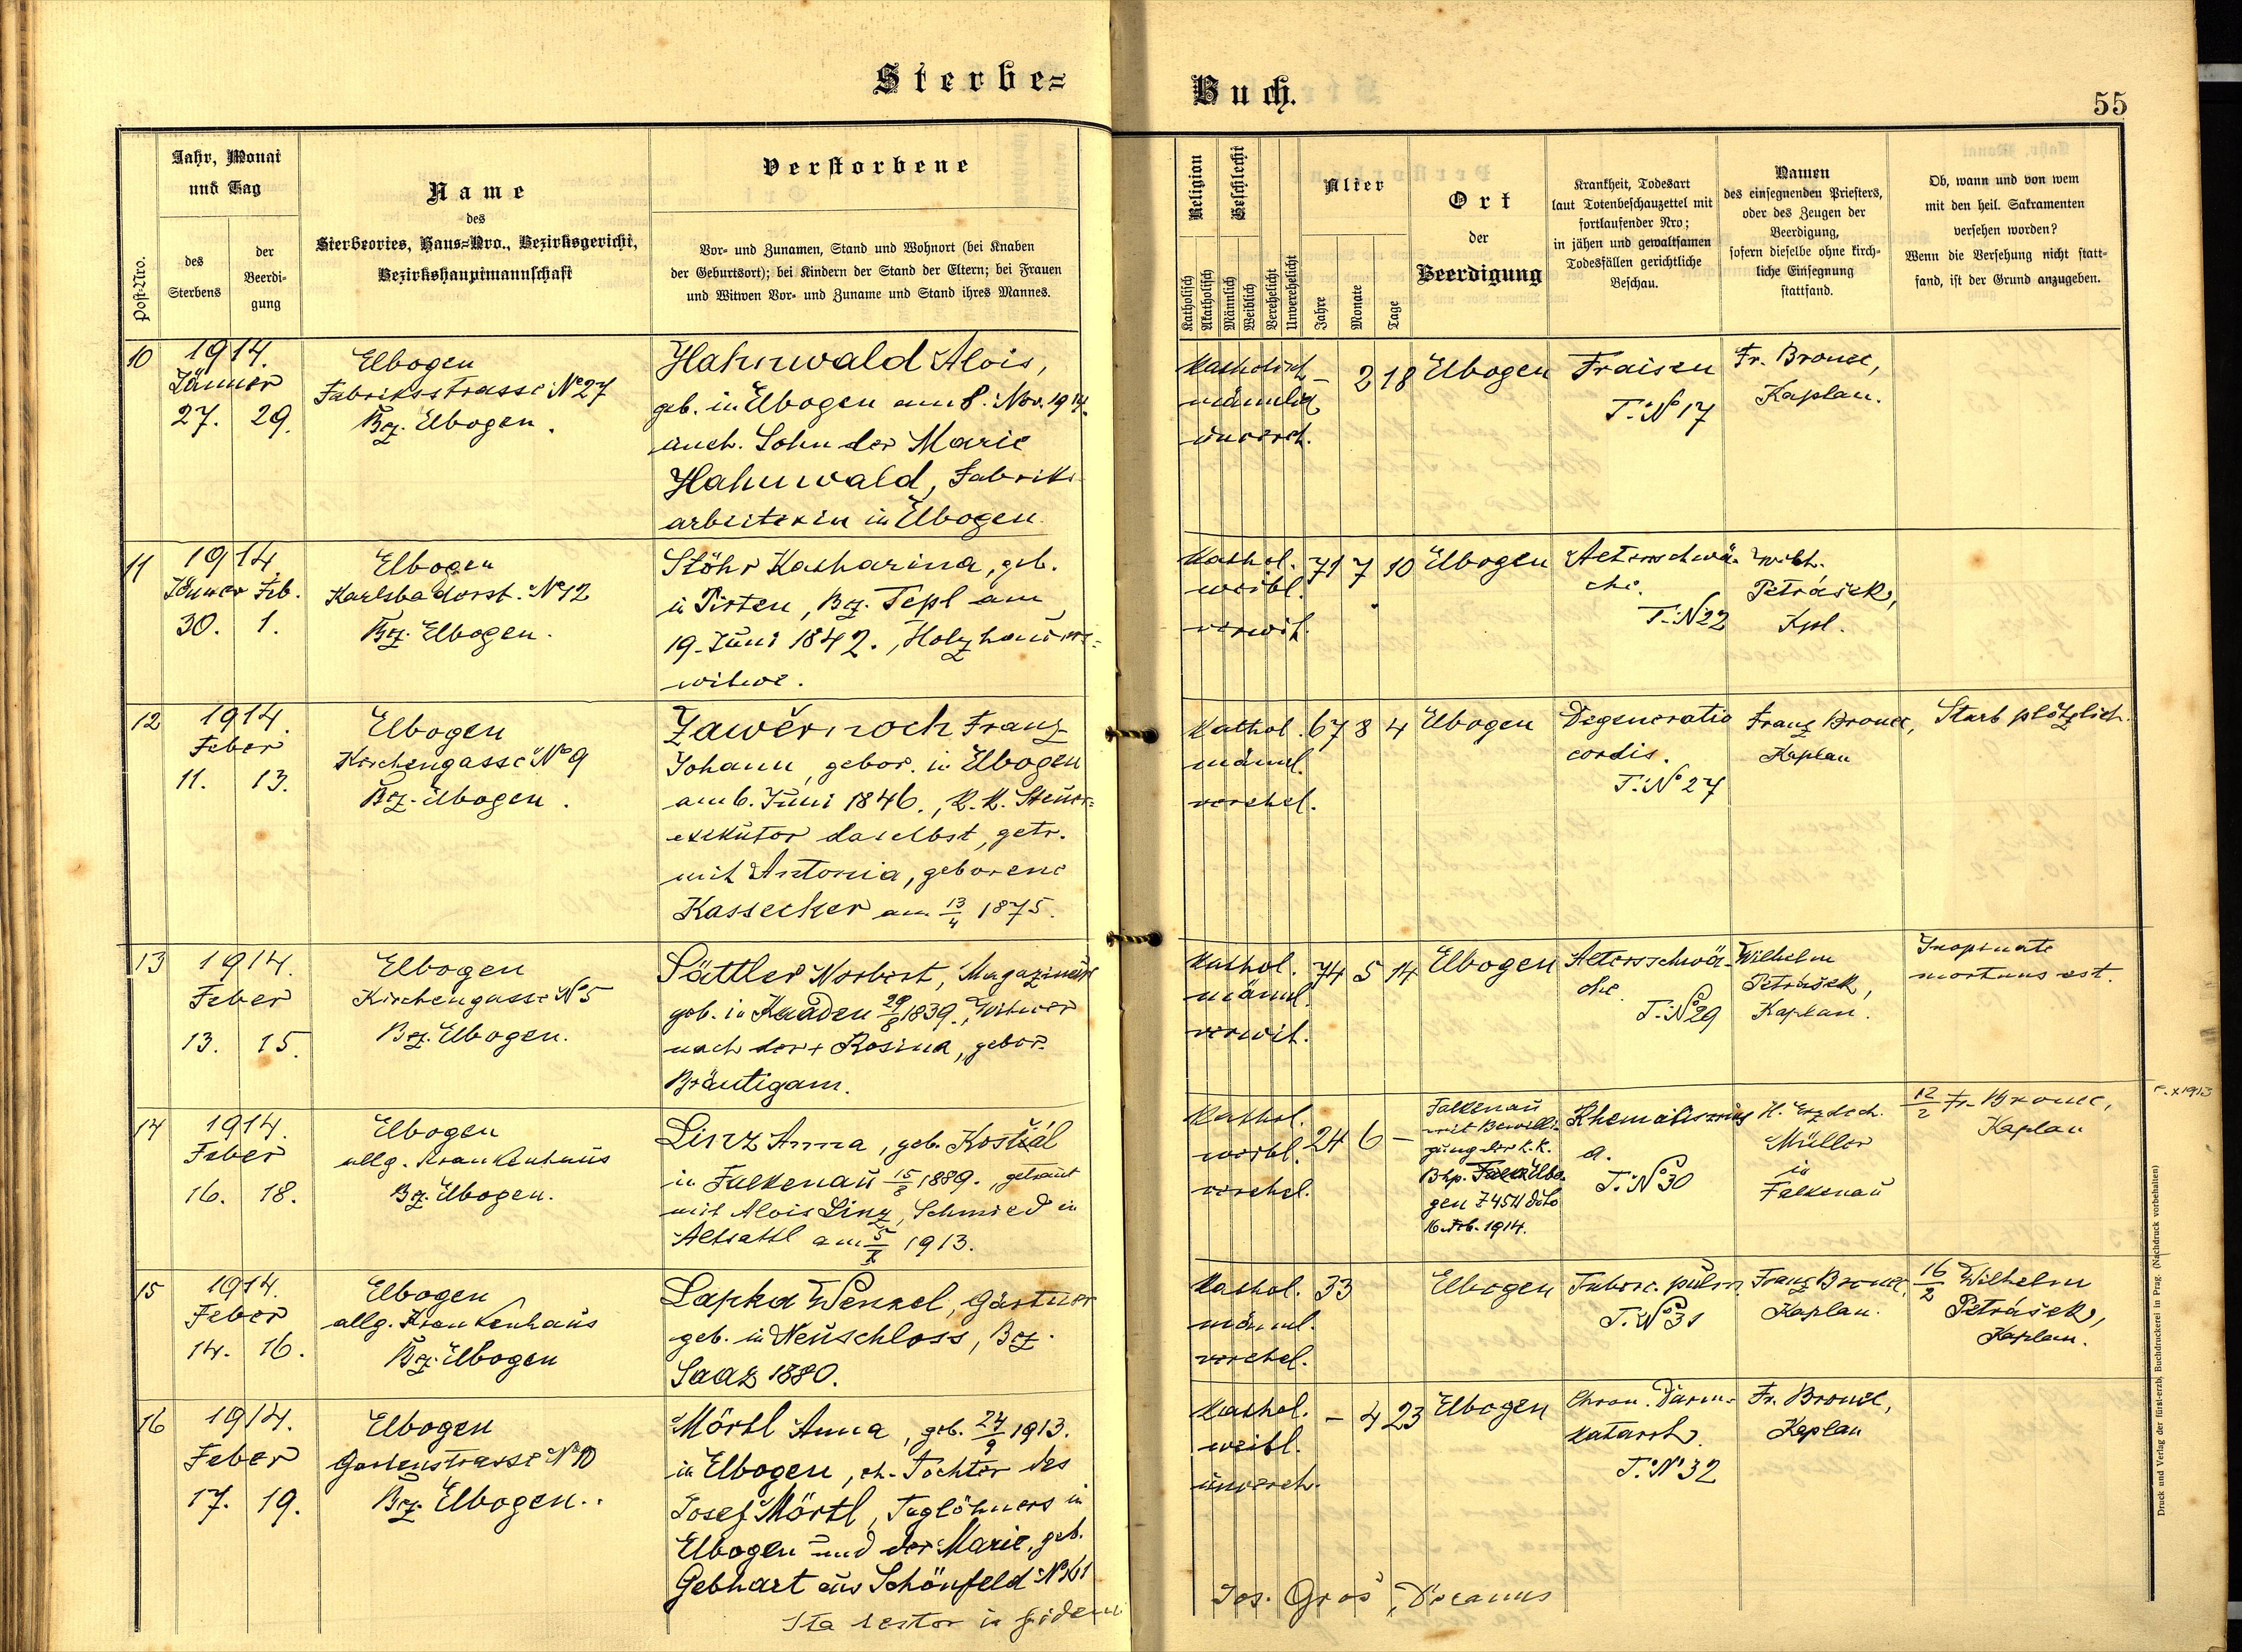 Sterbe=
Buch.
55
Post-Nro.
Jahr, Monat
und Tag
des
Sterbens
der
Beerdi-
gung
Name
des
Sterbeortes, Haus=Nro., Bezirksgericht,
Bezirkshauptmannschaft
Verstorbene
Vor- und Zunamen, Stand und Wohnort (bei Knaben
der Geburtsort); bei Kindern der Stand der Eltern; bei Frauen
und Witwen Vor- und Zuname und Stand ihres Mannes.
Religion
Katholisch
Akatholisch
Geschlecht
Männlich
Weiblich
Verehelicht
Unverehelicht
Alter
Jahre
Monate
Tage
Ort
der
Beerdigung
Krankheit, Todesart
laut Totenbeschauzettel mit
fortlaufender Nro;
in jähen und gewaltsamen
Todesfällen gerichtliche
Beschau.
Namen
des einsegnenden Priesters,
oder des Zeugen der
Beerdigung,
sofern dieselbe ohne kirch-
liche Einsegnung
stattfand.
Ob, wann und von wem
mit den heil. Sakramenten
versehen worden?
Wenn die Versehung nicht statt-
fand, ist der Grund anzugeben.
10
1914.
Jänner
27. 29.
Elbogen
Fabriksstrasse No 27
Bez. Elbogen.
Hahnwald Alois,
geb. in Elbogen am 8. Nov. 1914.
aueh. Sohn der Marie
Hahnwald, Fabriks
arbeiterin in Elbogen.
Katholisch
männlich
unvereh.
- 2 18
Elbogen
Fraisen
T. No 17
Fr. Bronec,
Kaplan.
11
1914.
Jänner Feb.
30. 1.
Elbogen
Karlsbaderst. No 12
Bez. Elbogen.
Stöhr Katharina, geb.
in Pirten, Bez. Tepl am
19. Juni 1842., Holzhauers-
witwe.
Kathol.
weibl.
verwit.
71 7 10
Elbogen
Altersschwä-
che.
T. No 22
Wilh.
Petrášek,
Kpl.
12
1914.
Feber
11. 13.
Elbogen
Kirchengasse No 9
Bez. Elbogen.
Zawěrnoch Franz
Johann, gebor. in Elbogen
am 6. Juni 1846., k. k. Steuer=
exekutor daselbst, getr.
mit Antonia, geborene
Kassecker am 13/4 1875.
Kathol.
männl.
verehel.
67 8 4
Elbogen
Degeneratio
cordis.
T. No 27
Franz Bronec,
Kaplan
Starb plötzlich.
13
1914.
Feber
13. 15.
Elbogen
Kirchengasse No 5
Bez. Elbogen.
Sättler Norbert, Magazineur
geb. in Kaaden 29/8 1839., Witwer
nach der + Rosina, gebor.
Bräutigam.
Kathol.
männl.
verwit.
74 5 14
Elbogen
Altersschwä-
che.
T. No 29
Wilhelm
Petrášek,
Kaplan.
Inopinate
mortuus est.
14
1914.
Feber
16. 18.
Elbogen
allg. Krankenhaus
Bez. Elbogen.
Linz Anna, geb. Kostiál
in Falkenau 15/8 1889., getraut
mit Alois Linz, Schmied in
Altsattl am 5/X 1913.
Kathol.
weibl.
verehel.
24 6 -
Falkenau
mit Bewilli-
gung der k. k.
Bhp. Falk Elbo-
gen Z 4511 ddto
16. Feb. 1914.
Rhematismus
a.
T. No 30
H. Erzdech.
Müller
in
Falkenau
12/2 Fr. Bronec,
Kaplan
15
1914.
Feber
14. 16.
Elbogen
allg. Krankenhaus
Bez. Elbogen
Lapka Wenzel, Gärtner
geb. in Neuschloss, Bez.
Saaz 1880.
Kathol.
männl.
verehel.
33
Elbogen
Tuberc. pulm.
T. No 31
Franz Bronec,
Kaplan.
16/2 Wilhelm
Petrášek,
Kaplan.
16
1914.
Feber
17. 19.
Elbogen
Gartenstrasse No 10
Bez. Elbogen.
Mörtl Anna, geb. 24/9 1913.
in Elbogen, eh. Tochter des
Josef Mörtl, Taglöhners in
Elbogen und der Marie, geb.
Gebhart aus Schönfeld No 161
Kathol.
weibl.
unvereh.
- 4 23
Elbogen
Chron. Darm-
katarrh.
T. No 32
Fr. Bronec,
Kaplan
Ita testor in fidem
Jos. Gros, Decanus
Druck und Verlag der fürst-erzb. Buchdruckerei in Prag. (Nachdruck vorbehalten)